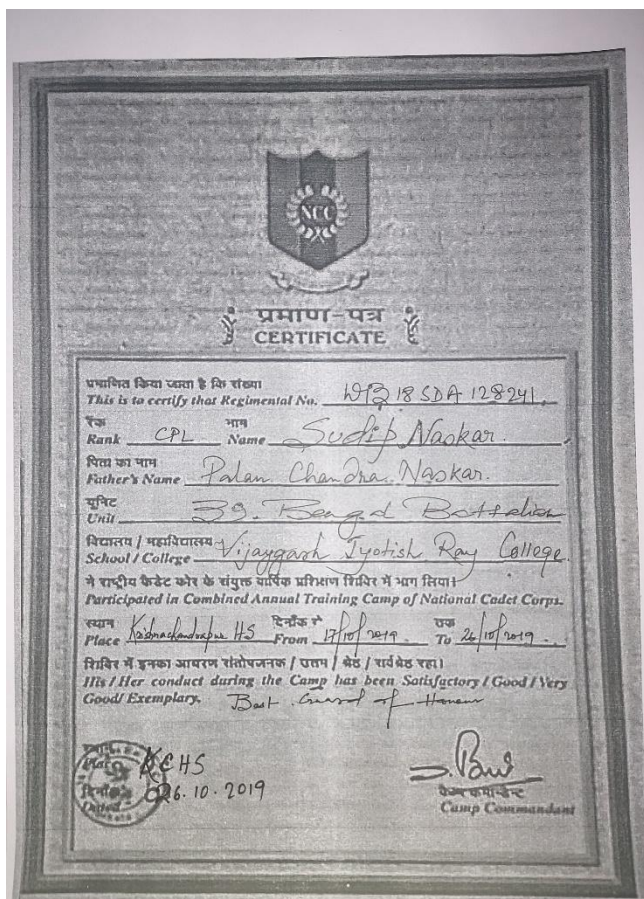 NCC
प्रमाण-पत्र
CERTIFICATE
प्रमाणित किया जाता है कि संख्या
This is to certify that Regimental No. WB 18 SDA 128241.
रैंक नाम
Rank CPL Name Sudip Naskar.
पिता का नाम
Father's Name Palan Chandra Naskar.
यूनिट
Unit 39. Bengal Battalion
विद्यालय / महाविद्यालय
School / College Vijaygarh Jyotish Ray College.
ने राष्ट्रीय कैडेट कोर के संयुक्त वार्षिक प्रशिक्षण शिविर में भाग लिया।
Participated in Combined Annual Training Camp of National Cadet Corps.
स्थान दिनाँक से तक
Place Krishnachandrapur HS From 17/10/2019 To 26/10/2019.
शिविर में इनका आचरण संतोषजनक / उत्तम / श्रेष्ठ / सर्वश्रेष्ठ रहा।
His / Her conduct during the Camp has been Satisfactory / Good / Very
Good / Exemplary. Best Guard of Honour
स्थान
Place KCHS
दिनाँक
Dated 26.10.2019
कैम्प कमान्डेन्ट
Camp Commandant